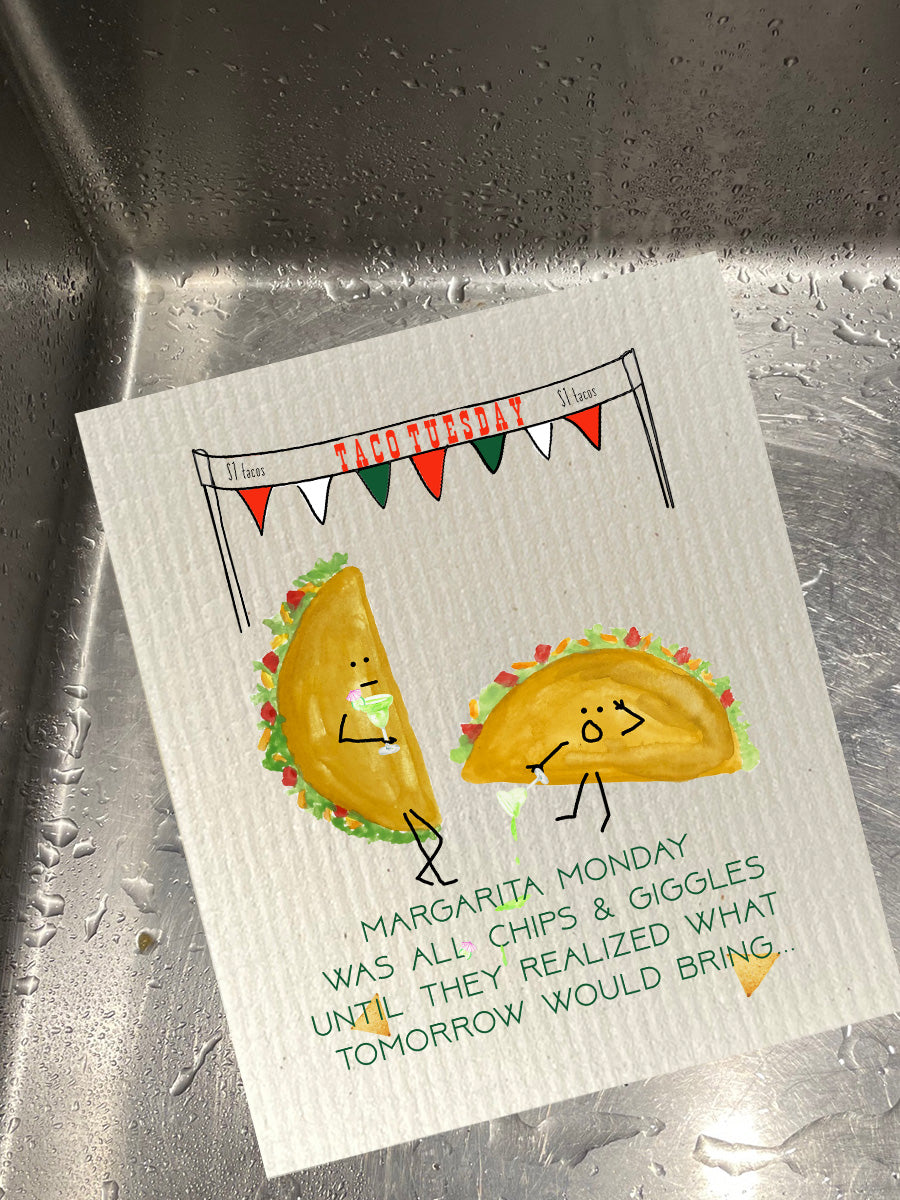 $1 tacos TACO TUESDAY $1 tacos
MARGARITA MONDAY
WAS ALL CHIPS & GIGGLES
UNTIL THEY REALIZED WHAT
TOMORROW WOULD BRING...